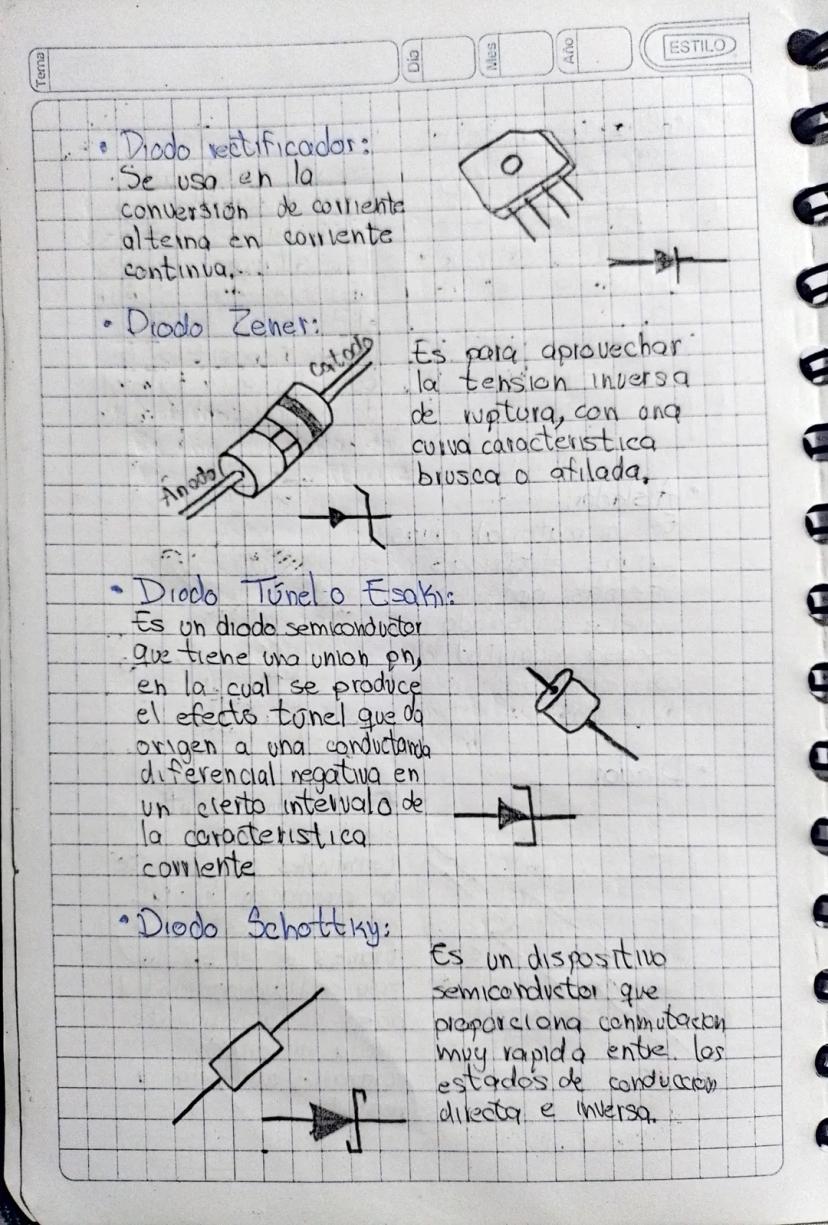 Tema
Día
Mes
Año
ESTILO
• Diodo rectificador:
Se usa en la
conversión de corriente
alterna en corriente
continua.
• Diodo Zener:
Catodo
Ánodo
Es para aprovechar
la tension inversa
de ruptura, con una
curva caracteristica
brusca o afilada.
• Diodo Túnel o Esaki:
Es un diodo semiconductor
que tiene una union pn,
en la cual se produce
el efecto túnel que da
origen a una conductancia
diferencial negativa en
un cierto intervalo de
la caracteristica
corriente
• Diodo Schottky:
Es un dispositivo
semiconductor que
proporciona conmutacion
muy rapida entre los
estados de conduccion
directa e inversa.